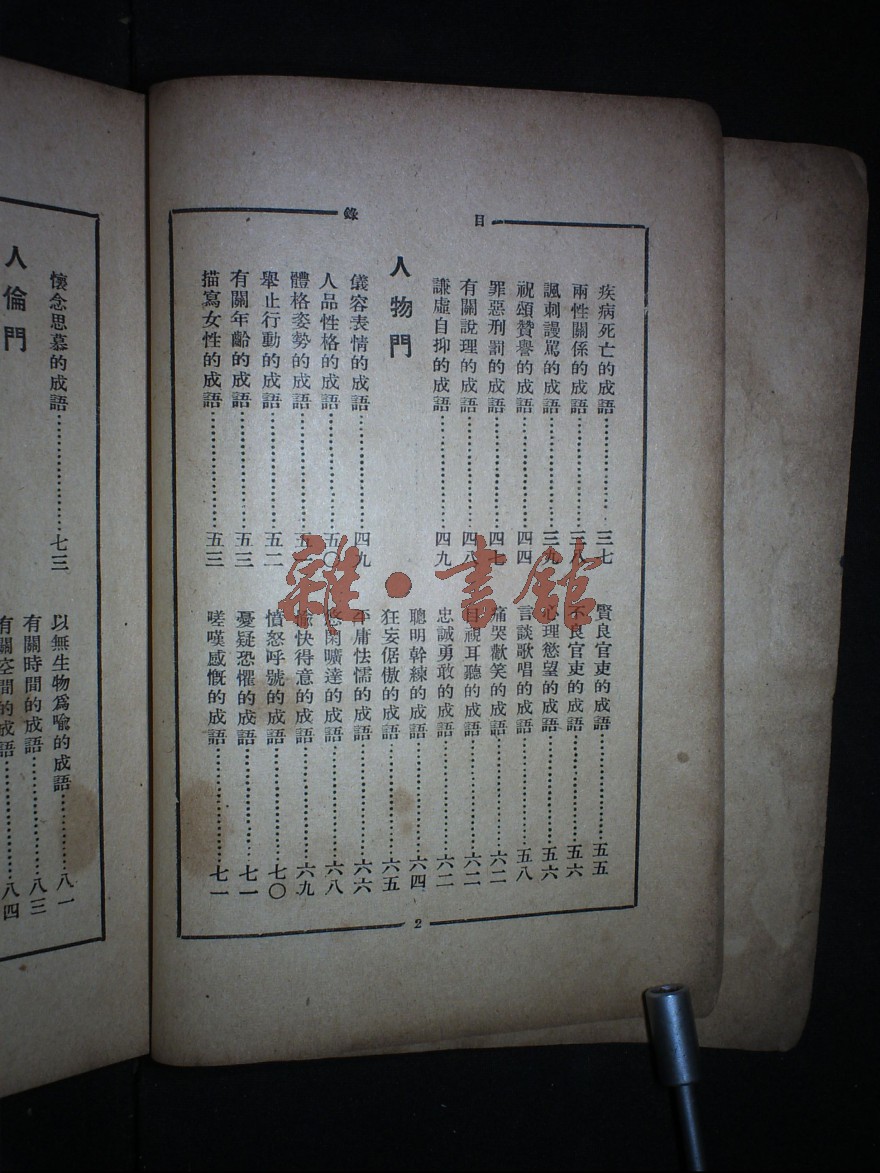 目錄
疾病死亡的成語…………三七
兩性關係的成語…………三八
諷刺謾罵的成語…………三九
祝頌贊譽的成語…………四四
罪惡刑罰的成語…………四七
有關說理的成語…………四八
謙虛自抑的成語…………四九
人物門
儀容表情的成語…………四九
人品性格的成語…………五〇
體格姿勢的成語…………五一
舉止行動的成語…………五二
有關年齡的成語…………五三
描寫女性的成語…………五三
賢良官吏的成語…………五五
不良官吏的成語…………五六
心理慾望的成語…………五六
言談歌唱的成語…………五八
痛哭歡笑的成語…………六二
目視耳聽的成語…………六二
忠誠勇敢的成語…………六二
聰明幹練的成語…………六四
狂妄倨傲的成語…………六五
平庸怯懦的成語…………六六
悠閑曠達的成語…………六八
愉快得意的成語…………六九
憤怒呼號的成語…………七〇
憂疑恐懼的成語…………七一
嗟嘆感慨的成語…………七一
2
懷念思慕的成語…………七三
人倫門
以無生物爲喩的成語…………八一
有關時間的成語…………八三
有關空間的成語…………八四
雜·書館